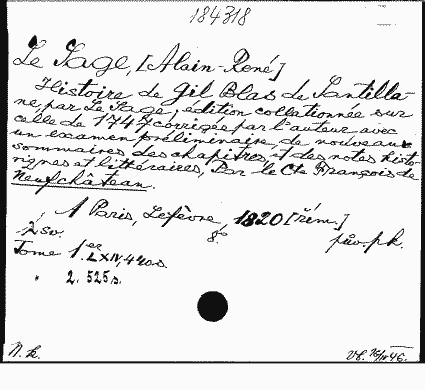 184318
Le Sage, [Alain-René]
Histoire de Gil Blas de Santilla-
ne, par Le Sage; édition collationnée sur
celle de 1747 corrigée par l'auteur avec
un examen préliminaire, de nouveaux
sommaires des chapitres et des notes histo-
riques et littéraires, Par le Cte François de
Neufchâteau.
A Paris, Lefèvre, 1820 [řím.]
2 sv. 8° pův. pk.
Tome 1.er LXIV. 440 s.
" 2. 525 s.
N. k.